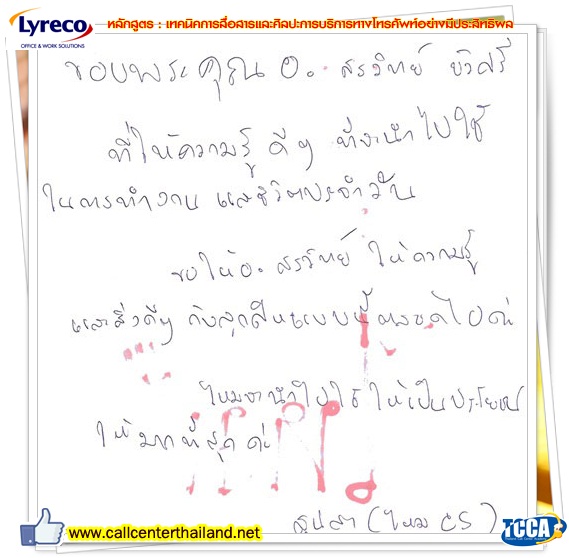 Lyreco
OFFICE & WORK SOLUTIONS
หลักสูตร : เทคนิคการสื่อสารและศิลปะการบริการทางโทรศัพท์อย่างมีประสิทธิผล
ขอบพระคุณ อ. สรวิทย์ บัวศรี
ที่ให้ความรู้ ดีๆ ที่จะนำไปใช้
ในการทำงาน และชีวิตประจำวัน
ขอให้ อ. สรวิทย์ ให้ความรู้
และสิ่งดีๆ กับลูกศิษย์แบบนี้ตลอดไปค่ะ
ไหมจะนำไปใช้ให้เป็นประโยชน์
ให้มากที่สุด ค่ะ
(ไหม CS)
www.callcenterthailand.net
TCCA